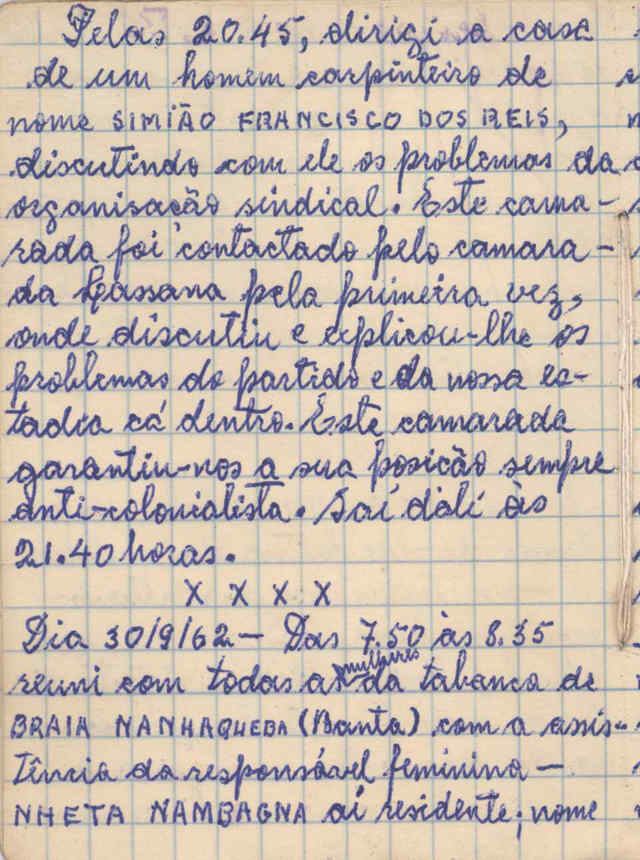 Pelas 20.45, dirigi a casa
de um homem carpinteiro de
nome SIMIÃO FRANCISCO DOS REIS,
discutindo com ele os problemas da
organisação sindical. Este cama-
rada foi contactado pelo camara-
da Lassana pela primeira vez,
onde discutiu e explicou-lhe os
problemas do partido e da nossa es-
tadia cá dentro. Este camarada
garantiu-nos a sua posição sempre
anti-colonialista. Saí dali às
21.40 horas.
X X X X
Dia 30/9/62 — Das 7.50 às 8.35
reuni com todas as mulheres da tabanca de
BRAIA NANHAQUEBA (Banta) com a assis-
tência da responsável feminina —
NHETA NAMBAGNA aí residente; nome